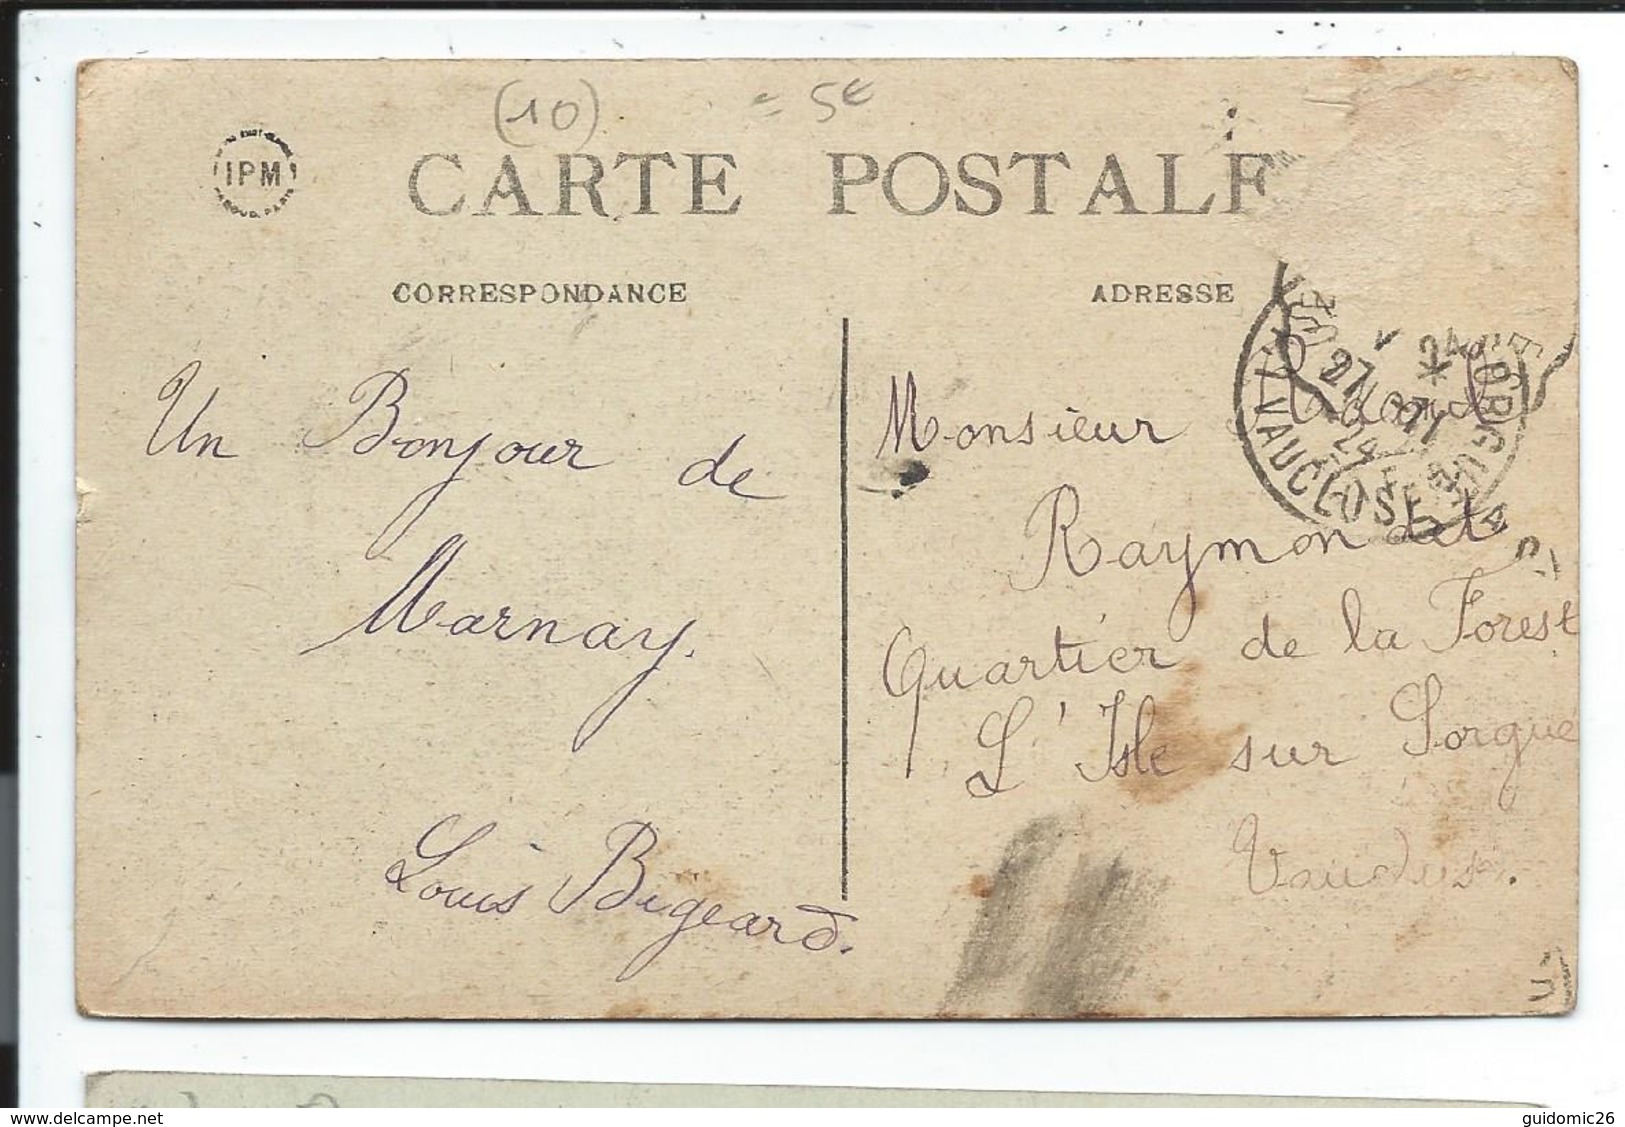 (10) = 5€
IPM
CARTE POSTALE
CORRESPONDANCE
ADRESSE
Un Bonjour de
Marnay.
Louis Bigeard.
Monsieur
Raymond
Quartier de la Forest
L'Isle sur Sorgue
Vaucluse.
VAUCLUSE
delcampe.net
guidomic26